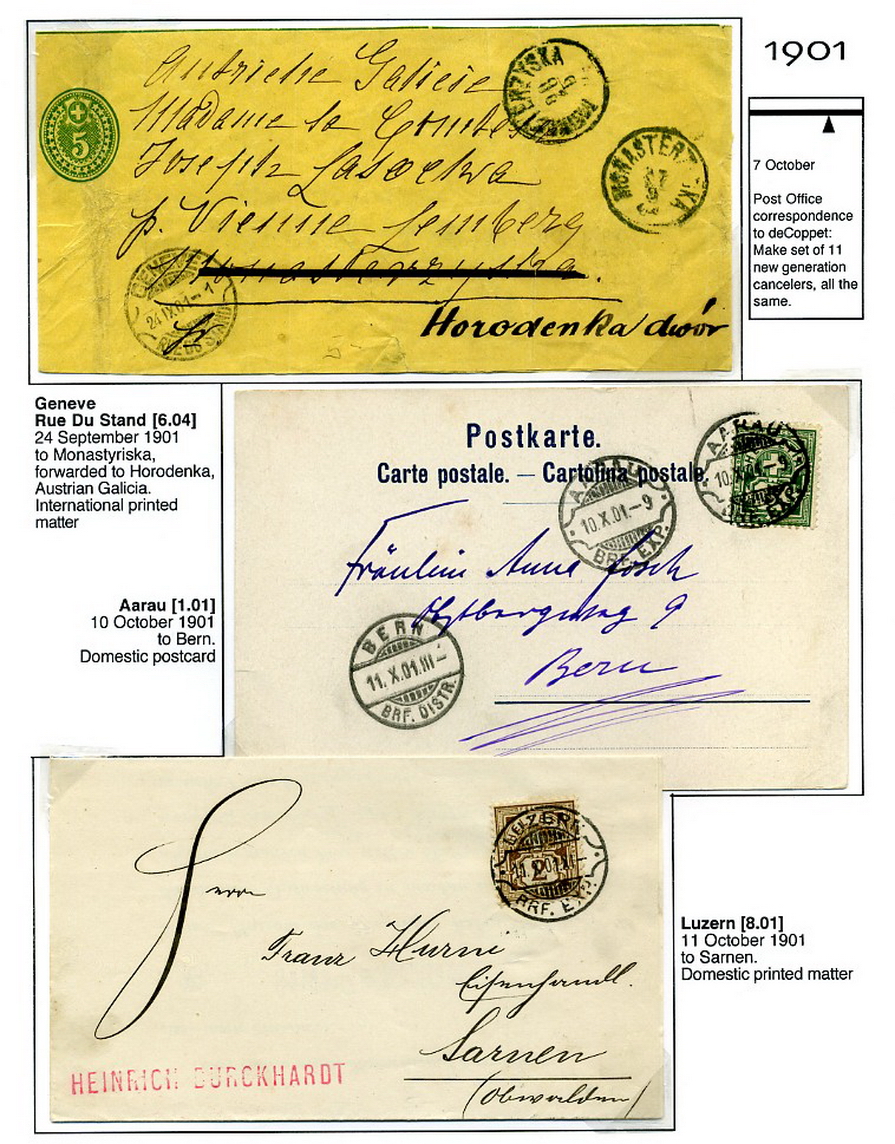 1901
7 October
Post Office
correspondence
to deCoppet:
Make set of 11
new generation
cancelers, all the
same.
5
Autriche Galicie
Madame la Comtesse
Josefitz Lasocka
p. Vienne Lemberg
Monasterzyska
Horodenka dwór
MONASTERZYSKA
GENEVE
24 IX.01.-1
RUE DU STAND
Geneve
Rue Du Stand [6.04]
24 September 1901
to Monastyriska,
forwarded to Horodenka,
Austrian Galicia.
International printed
matter
Postkarte.
Carte postale. — Cartolina postale.
AARAU
10.X.01.-9
BRF. EXP.
AARAU
10.X.01.-9
BRF. EXP.
Fräulein Anna
9
Bern
BERN
11.X.01.III-
BRF. DISTR.
Aarau [1.01]
10 October 1901
to Bern.
Domestic postcard
2
LUZERN
11.X.01.11-
BRF. EXP.
Herrn
Franz Hurni
Eisenhandl.
Sarnen
(Obwalden)
HEINRICH BURCKHARDT
Luzern [8.01]
11 October 1901
to Sarnen.
Domestic printed matter